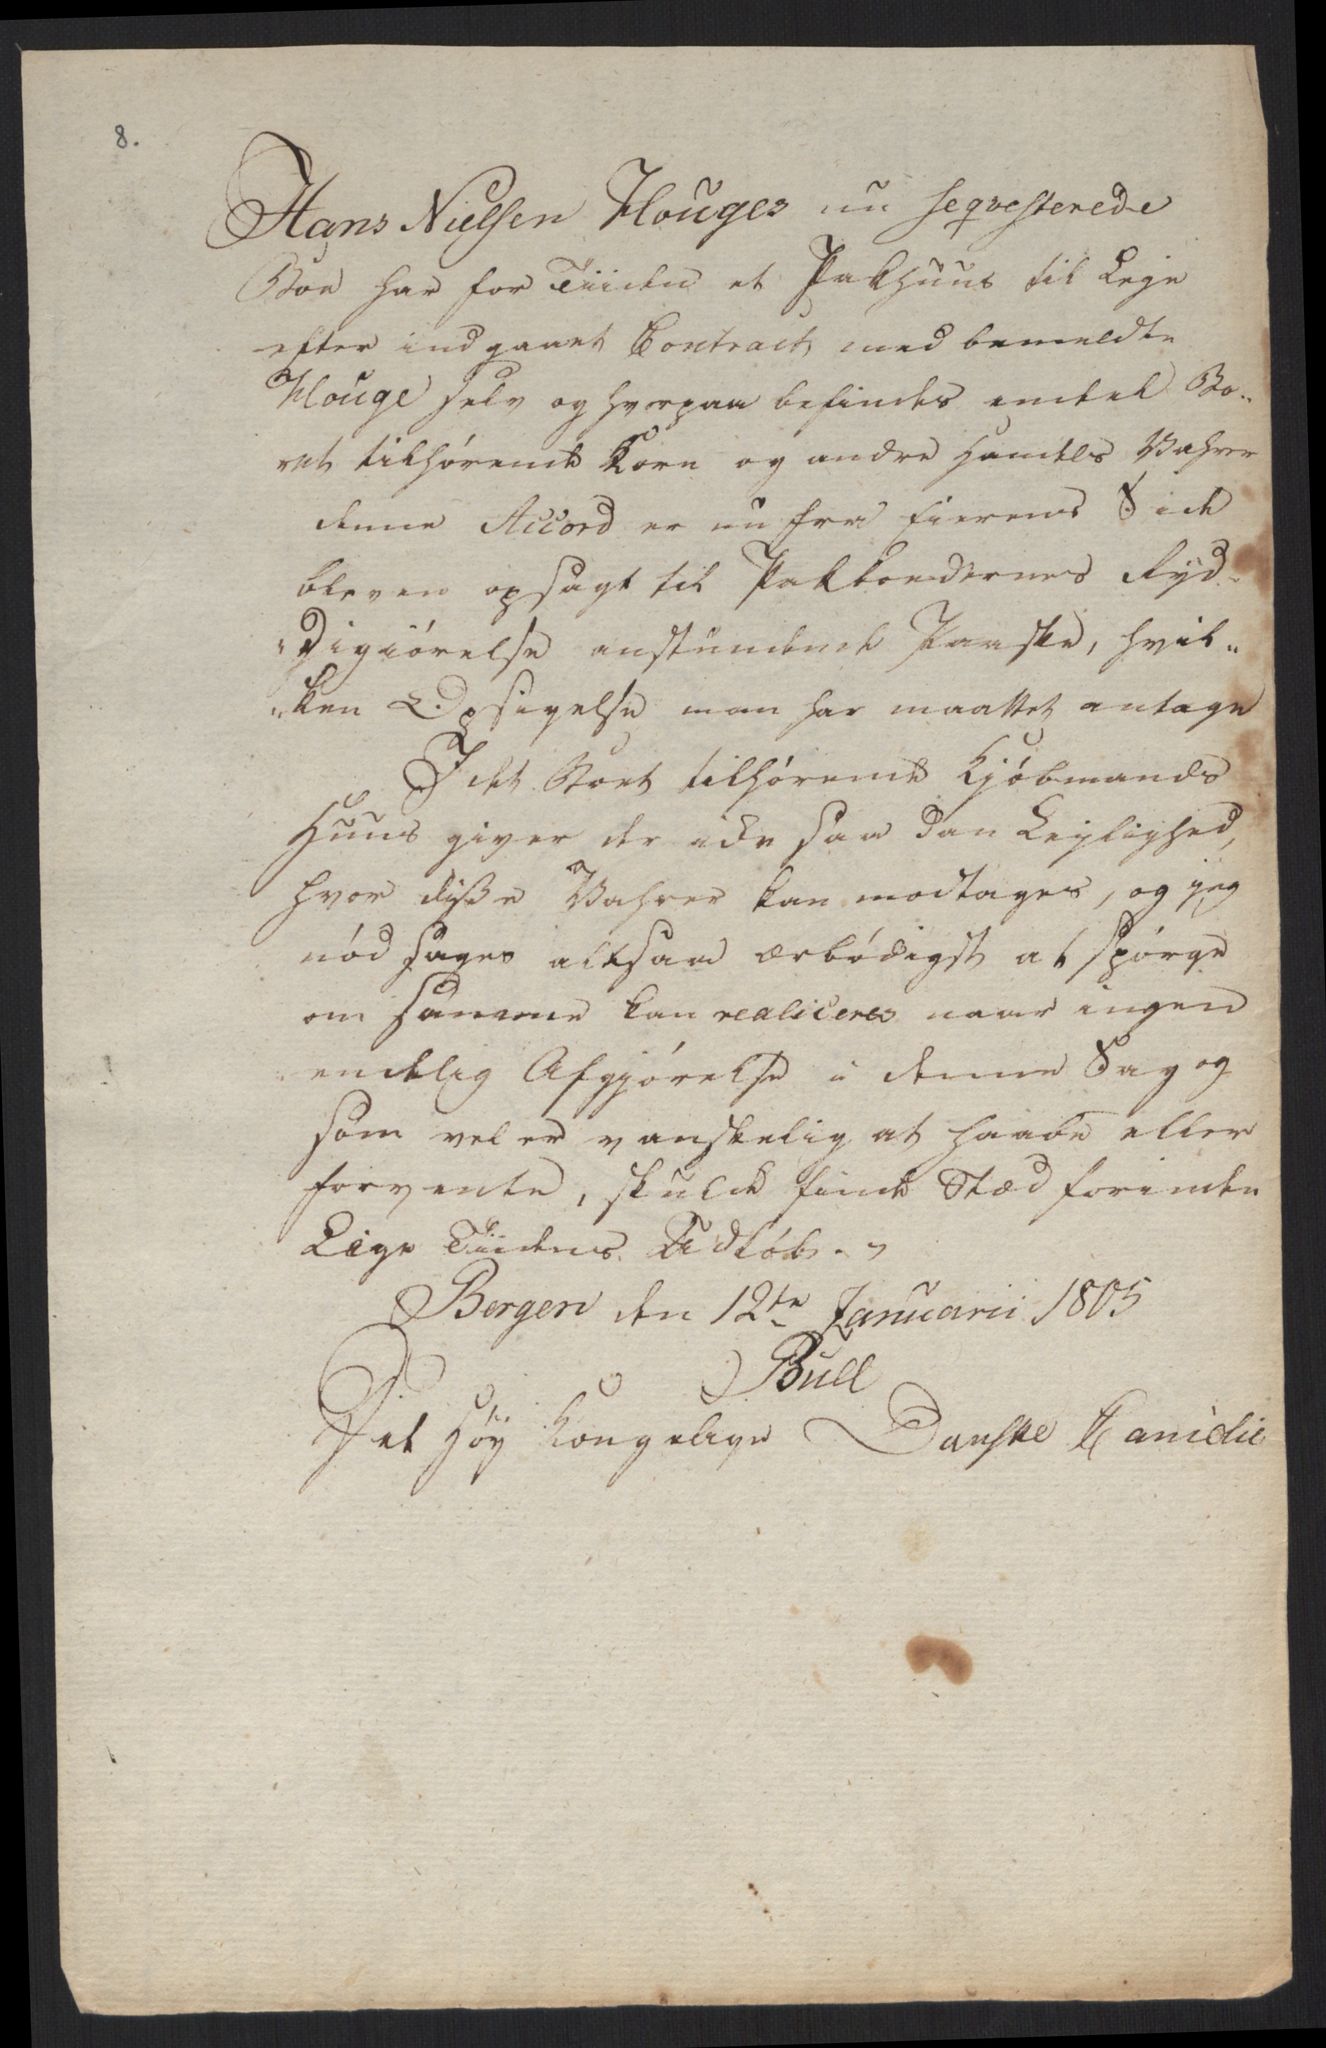 8.
Hans Nielsen Houges nu seqvesterede
Boe har for Tiiden et Pakhuus til Leje
efter indgaaet Contract med bemeldte
Houge selv og hvorpaa befindes endeel Bo„
ret tilhørende Korn og andre Handels Vahrer
denne Accord er nu fra Eierens Side
bleven opsagt til Pakboedernes Ryd„
„digiørelse anstundende Paaske, hvil„
„ken Opsigelse man har maattet antage
I det Boet tilhørende Kjøbmands
Huus giver der icke saadan Lejlighed,
hvor disse Vahrer kan modtages, og jeg
nødsages altsaa ærbødigst at spørge
om samme kan realiceres naar ingen
endelig Afgjørelse i denne Sag og
som vel er vanskelig at haabe eller
forvente, skulde finde Stæd forinden
Leye Tiidens Udløb.
Bergen den 12te Januarii 1805
Bull
Det Høy Kongelige Danske Cancelie